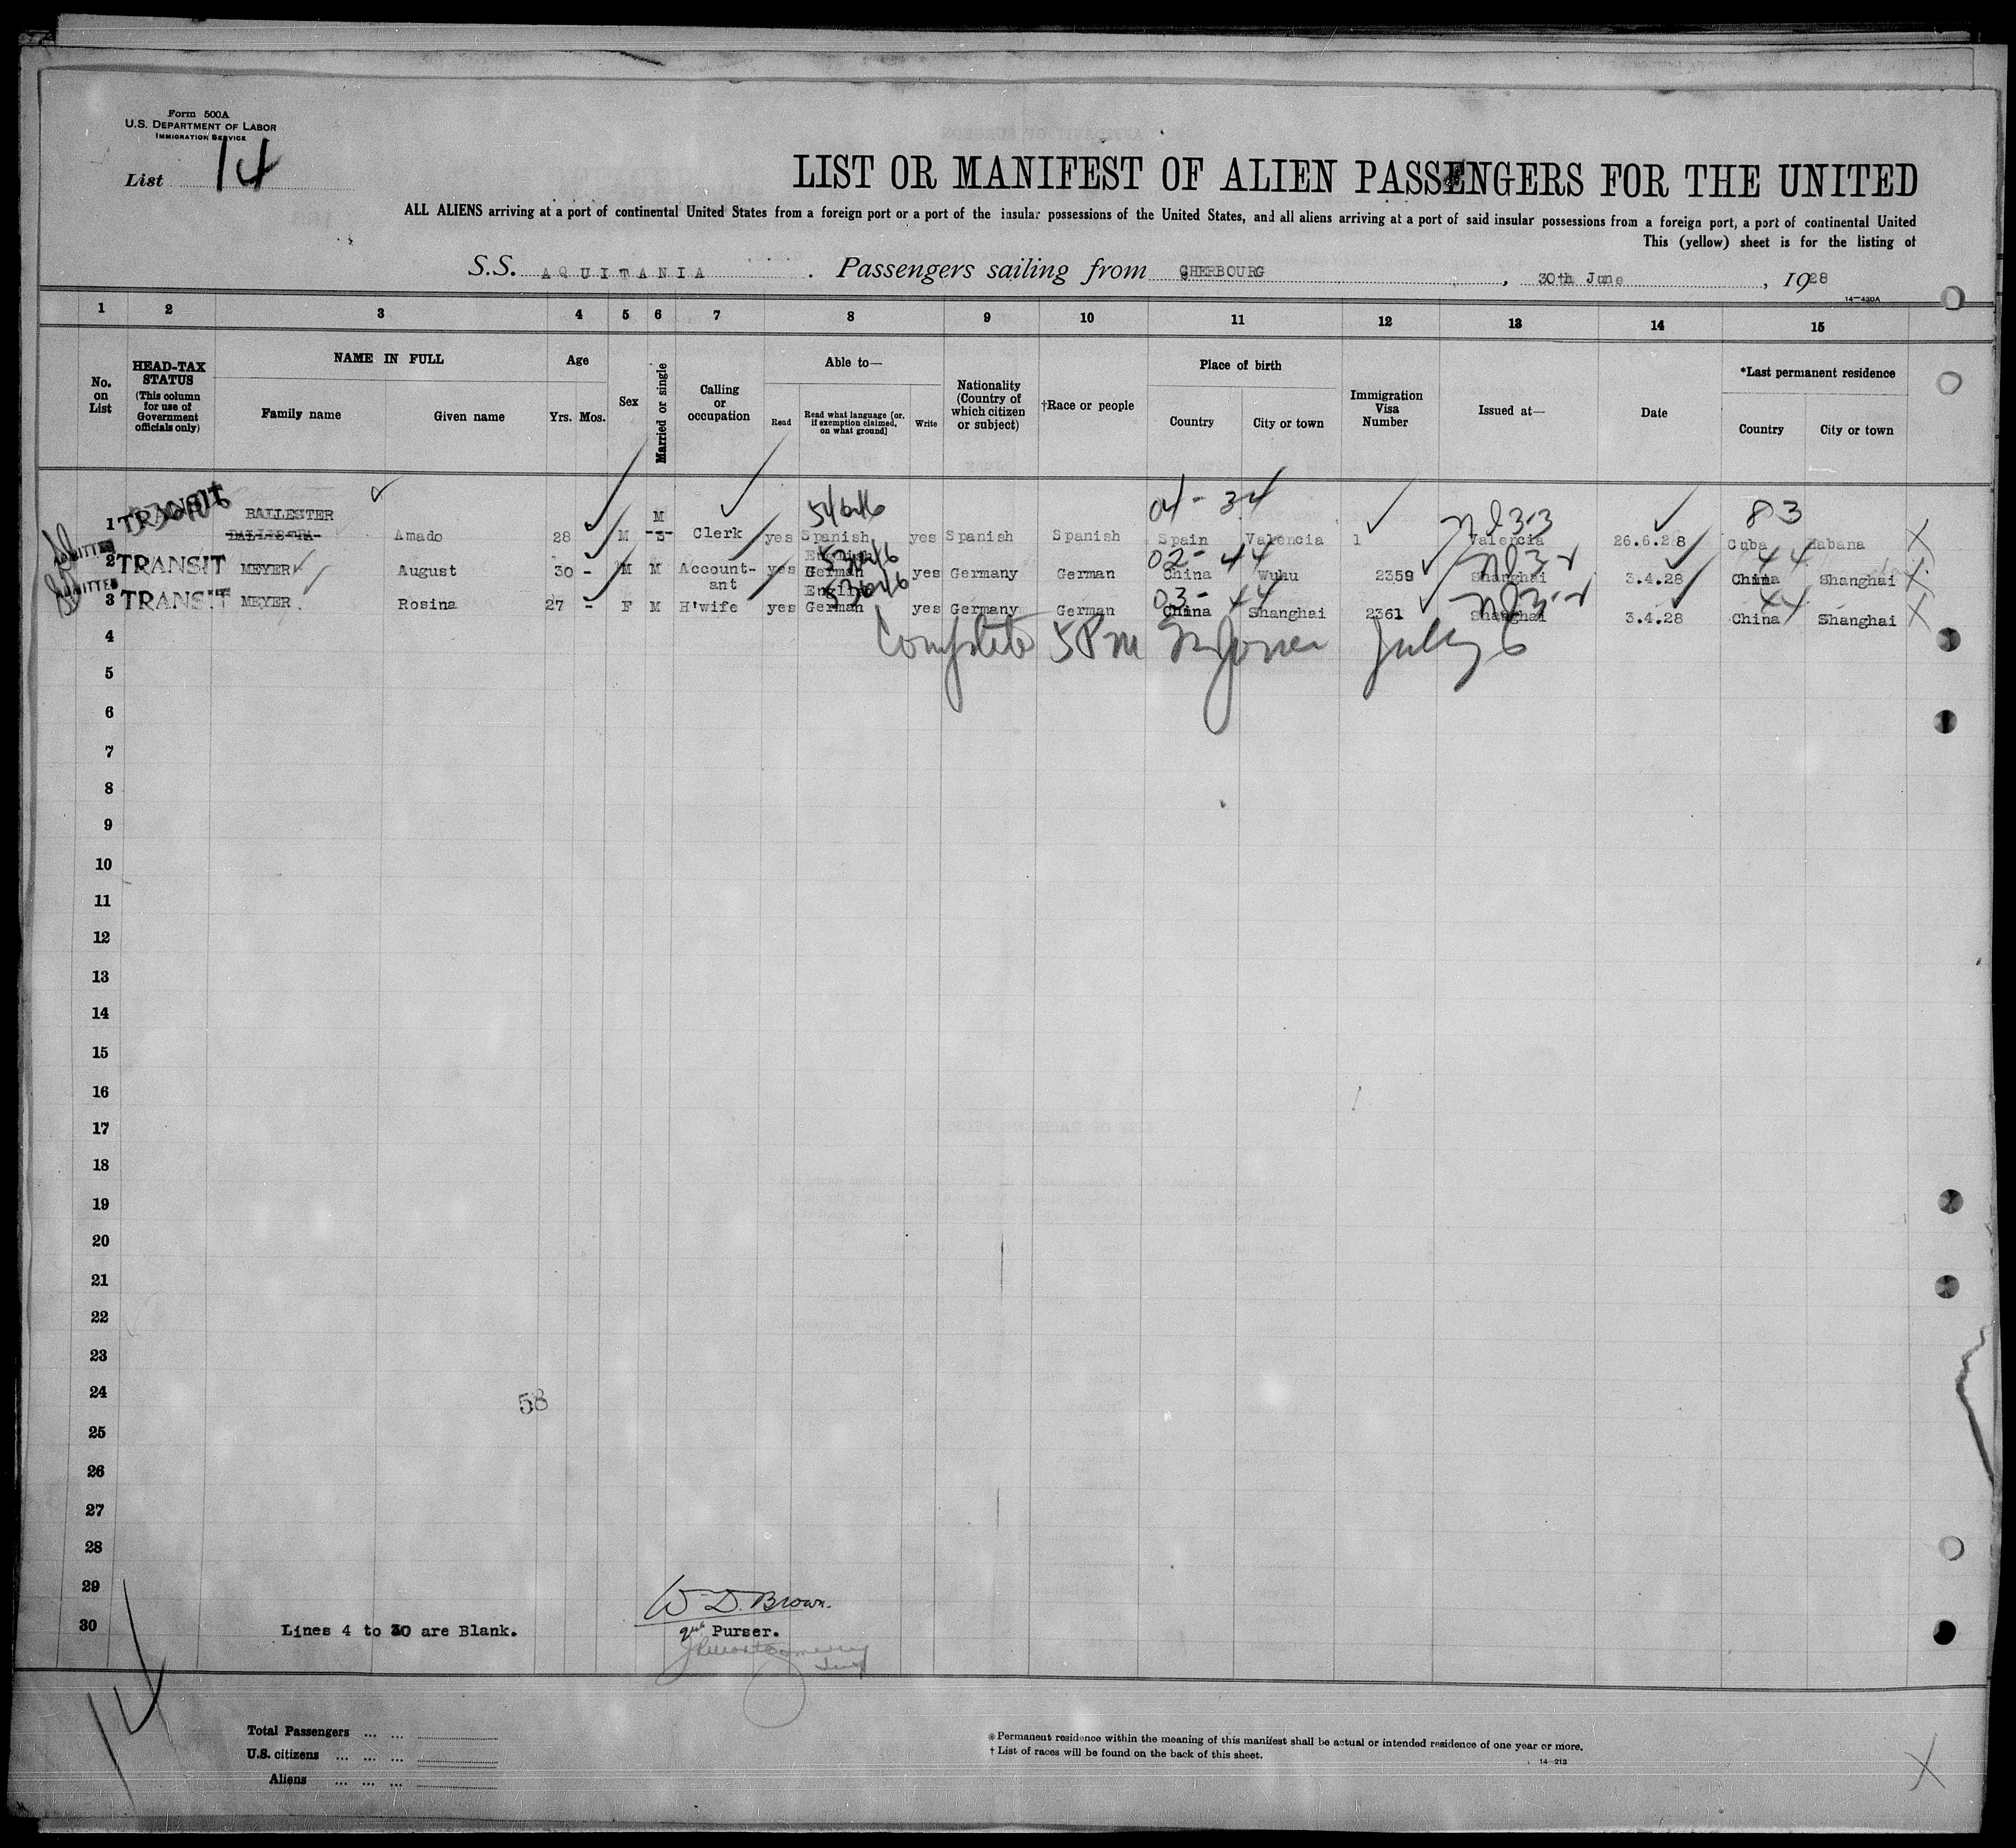 Form 500A
U.S. DEPARTMENT OF LABOR
IMMIGRATION SERVICE
List 14
LIST OR MANIFEST OF ALIEN PASSENGERS FOR THE UNITED
ALL ALIENS arriving at a port of continental United States from a foreign port or a port of the insular possessions of the United States, and all aliens arriving at a port of said insular possessions from a foreign port, a port of continental United
This (yellow) sheet is for the listing of
S.S. AQUITANIA . Passengers sailing from CHERBOURG , 30th June , 1928
14—430A
1 2 3 4 5 6 7 8 9 10 11 12 13 14 15
No. on List
HEAD-TAX STATUS (This column for use of Government officials only)
NAME IN FULL
Family name Given name
Age
Yrs. Mos.
Sex
Married or single
Calling or occupation
Able to—
Read
Read what language [or, if exemption claimed, on what ground]
Write
Nationality (Country of which citizen or subject)
†Race or people
Place of birth
Country City or town
Immigration Visa Number
Issued at—
Date
*Last permanent residence
Country City or town
04-34 Nl 3-3 83
1 TRANSIT BALLESTER Amado 28 M M S Clerk yes Spanish yes Spanish Spanish Spain Valencia 1 Valencia 26.6.28 Cuba Habana X
ADMITTED
02-44 44
2 TRANSIT MEYER August 30 - M M Accountant yes English German yes Germany German China Wuhu 2359 Shanghai 3.4.28 China Shanghai X
ADMITTED
03-44 44
3 TRANSIT MEYER Rosina 27 - F M H'wife yes English German yes Germany German China Shanghai 2361 Shanghai 3.4.28 China Shanghai X
4 Complete 5 PM Jones July 6
5
6
7
8
9
10
11
12
13
14
15
16
17
18
19
20
21
22
23
24
58
25
26
27
28
29
W. D. Brown.
30 Lines 4 to 30 are Blank. Purser.
14
Total Passengers ... ...
U.S. citizens ... ... ...
Aliens ... ... ...
*Permanent residence within the meaning of this manifest shall be actual or intended residence of one year or more.
† List of races will be found on the back of this sheet.
14—213
X